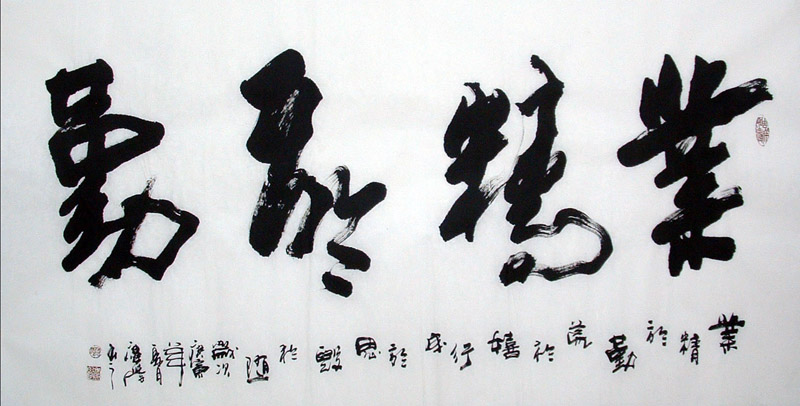 業精於勤
業精於勤荒於嬉行成於思毀於隨
歲次
庚寅